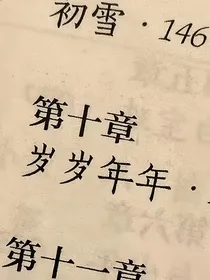 初雪·146
第十章
岁岁年年·
第十一章